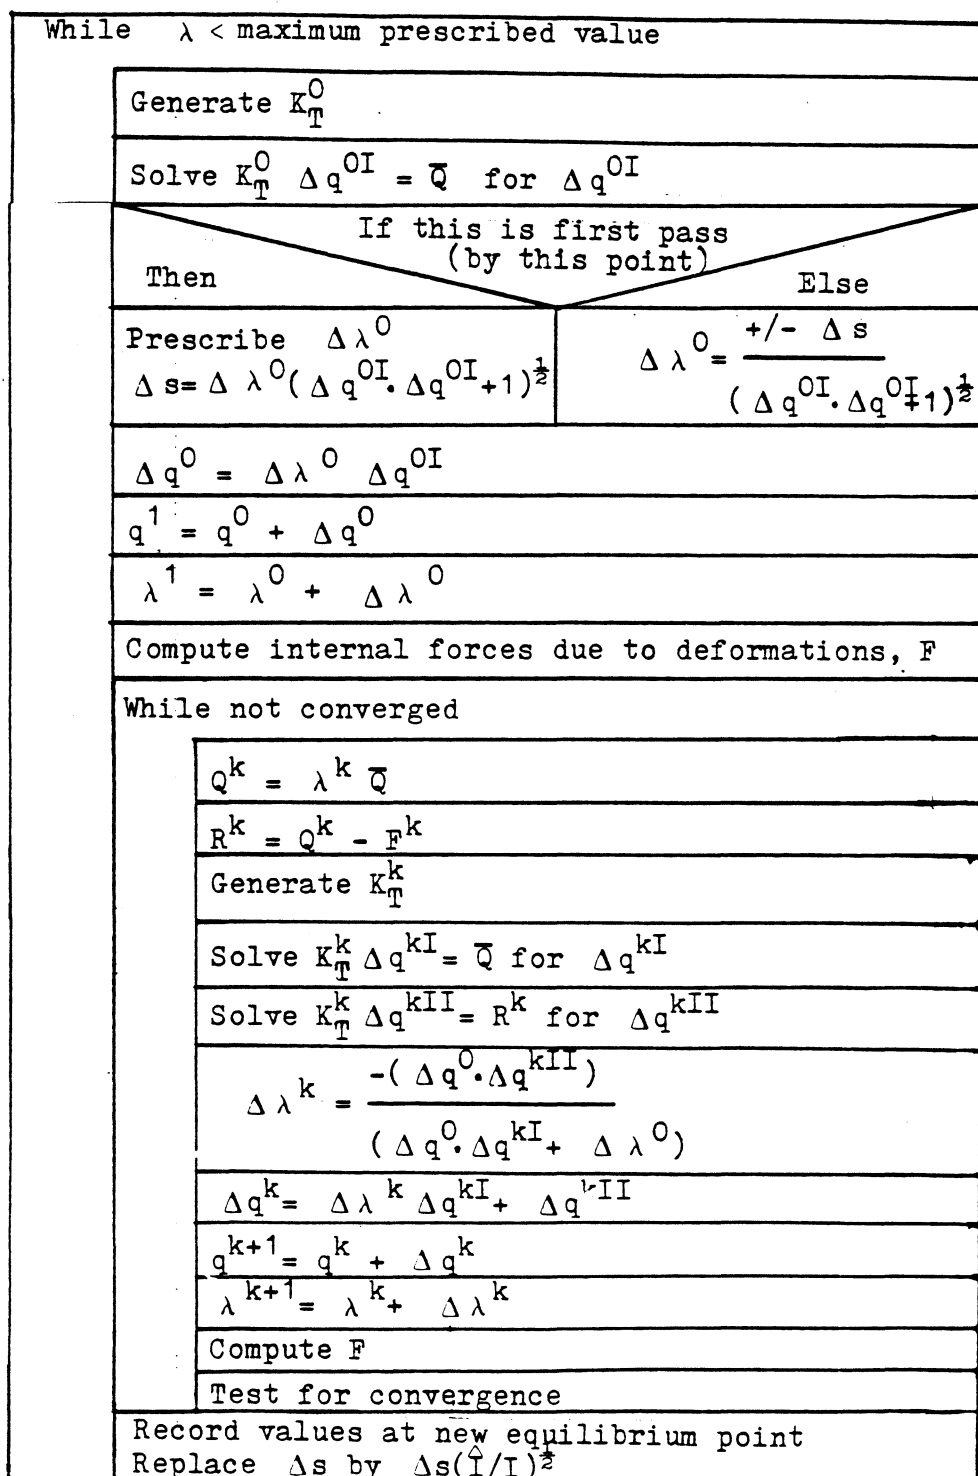 While λ < maximum prescribed value
Generate K_T^0
Solve K_T^0 Δq^{0I} = Q̄ for Δq^{0I}
If this is first pass
(by this point)
Then
Else
Prescribe Δλ^0
Δs = Δλ^0(Δq^{0I}·Δq^{0I}+1)^{1/2}
Δλ^0 = +/- Δs / (Δq^{0I}·Δq^{0I}+1)^{1/2}
Δq^0 = Δλ^0 Δq^{0I}
q^1 = q^0 + Δq^0
λ^1 = λ^0 + Δλ^0
Compute internal forces due to deformations, F
While not converged
Q^k = λ^k Q̄
R^k = Q^k - F^k
Generate K_T^k
Solve K_T^k Δq^{kI} = Q̄ for Δq^{kI}
Solve K_T^k Δq^{kII} = R^k for Δq^{kII}
Δλ^k = -(Δq^0·Δq^{kII}) / (Δq^0·Δq^{kI} + Δλ^0)
Δq^k = Δλ^k Δq^{kI} + Δq^{kII}
q^{k+1} = q^k + Δq^k
λ^{k+1} = λ^k + Δλ^k
Compute F
Test for convergence
Record values at new equilibrium point
Replace Δs by Δs(Î/I)^{1/2}